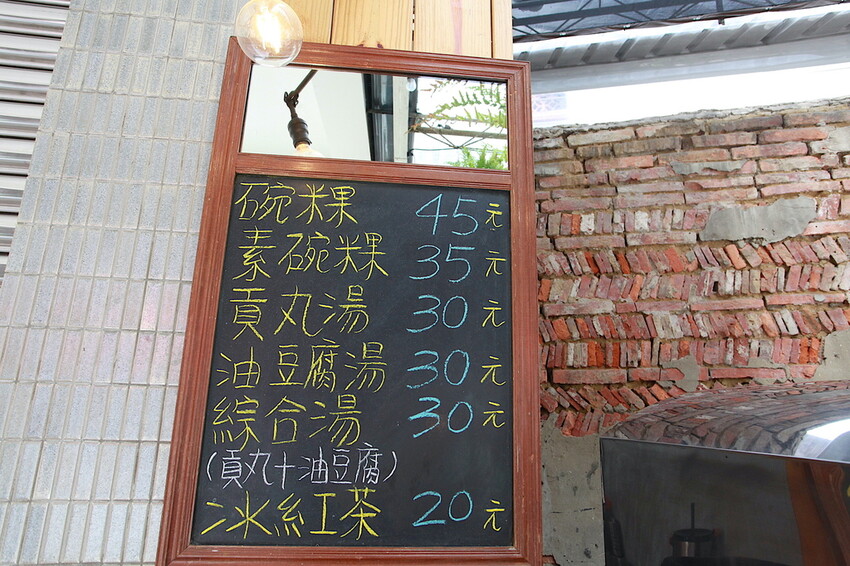 碗粿 45元
素碗粿 35元
貢丸湯 30元
油豆腐湯 30元
綜合湯 30元
(貢丸+油豆腐)
冰紅茶 20元